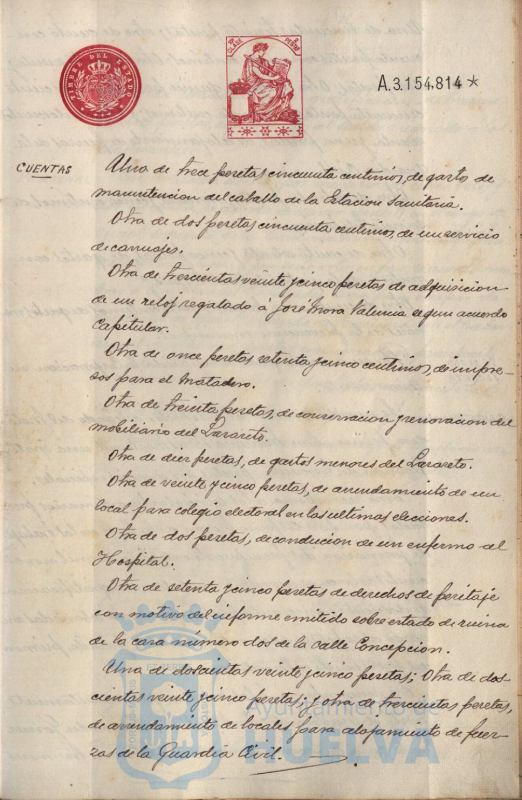 TIMBRE DEL ESTADO
A.3.154.814*
CUENTAS
Una de trece pesetas cincuenta centimos, de gasto de
manutencion del caballo de la Estacion Sanitaria.
Otra de dos pesetas cincuenta centimos, de un servicio
de carruajes.
Otra de trescientas veinte y cinco pesetas de adquisicion
de un reloj regalado á José Mora Valencia segun acuerdo
Capitular.
Otra de once pesetas setenta y cinco centimos, de impre-
sos para el Matadero.
Otra de treinta pesetas, de conservacion y renovacion del
mobiliario del Lazareto.
Otra de diez pesetas, de gastos menores del Lazareto.
Otra de veinte y cinco pesetas, de arrendamiento de un
local para colegio electoral en las ultimas elecciones.
Otra de dos pesetas, de conducion de un enfermo al
Hospital.
Otra de setenta y cinco pesetas de derechos de peritaje
con motivo del informe emitido sobre estado de ruina
de la casa número dos de la calle Concepcion.
Una de doscientas veinte y cinco pesetas; Otra de dos-
cientas veinte y cinco pesetas; y otra de trescientas pesetas,
de arrendamiento de locales para alojamiento de fuer-
zas de la Guardia Civil.
Ayuntamiento
HUELVA